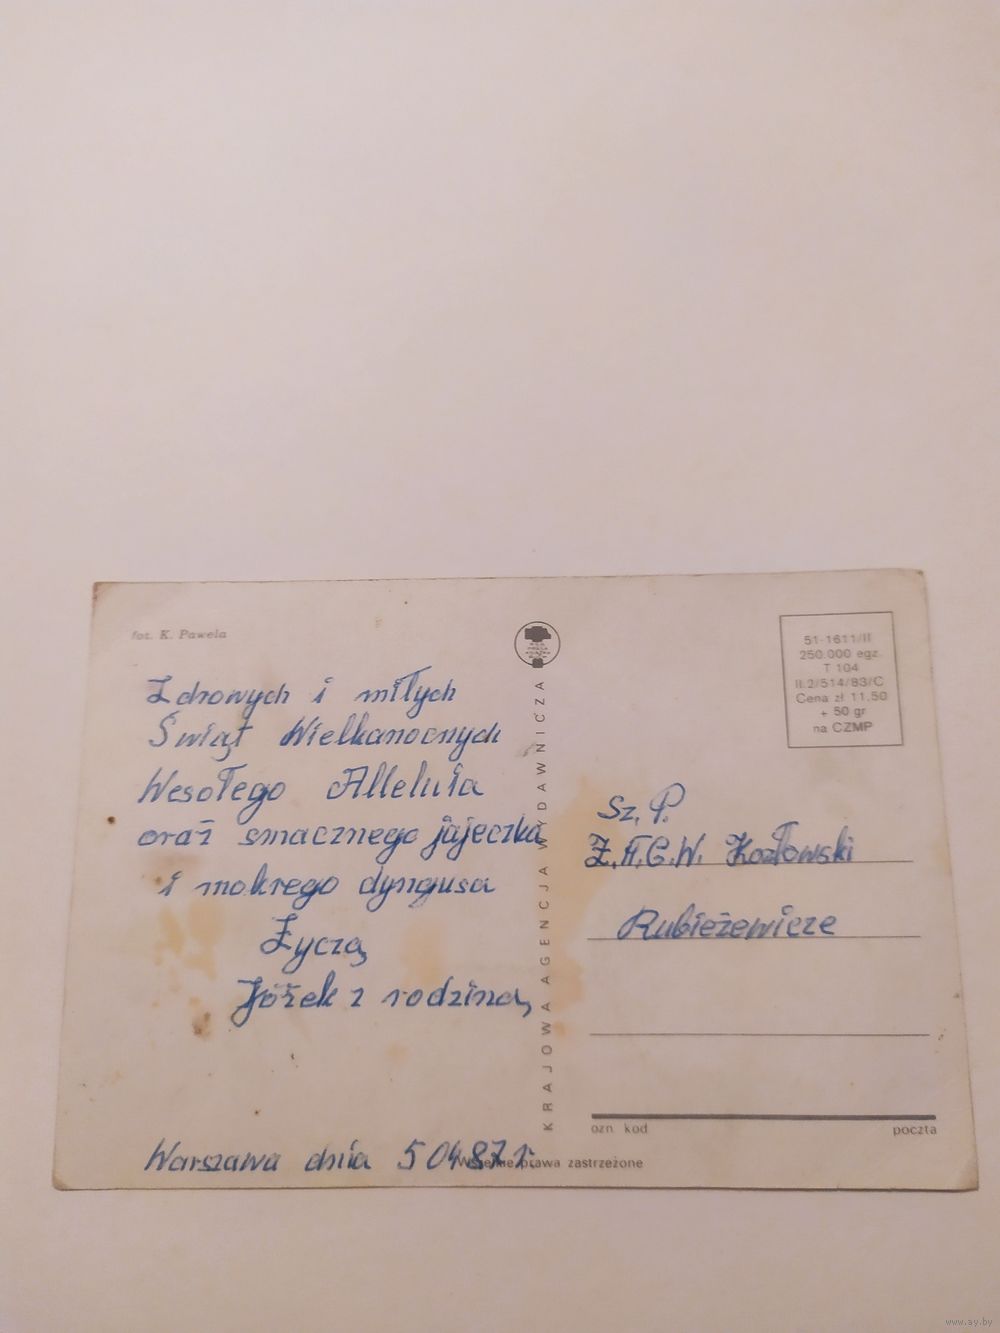 fot. K. Pawela
Zdrowych i miłych
Świąt Wielkanocnych
Wesołego Alleluia
oraz smacznego jajeczka
i mokrego dyngusa
Życzą
Józek z rodziną
Warszawa dnia 5 04 87 r.
KRAJOWA AGENCJA WYDAWNICZA
Wszelkie prawa zastrzeżone
51-1611/II
250.000 egz.
T 104
II.2/514/83/C
Cena zł 11,50
+ 50 gr
na CZMP
Sz. P.
Z.A.C.W. Kozłowski
Rubieżewicze
ozn. kod
poczta
www.ay.by